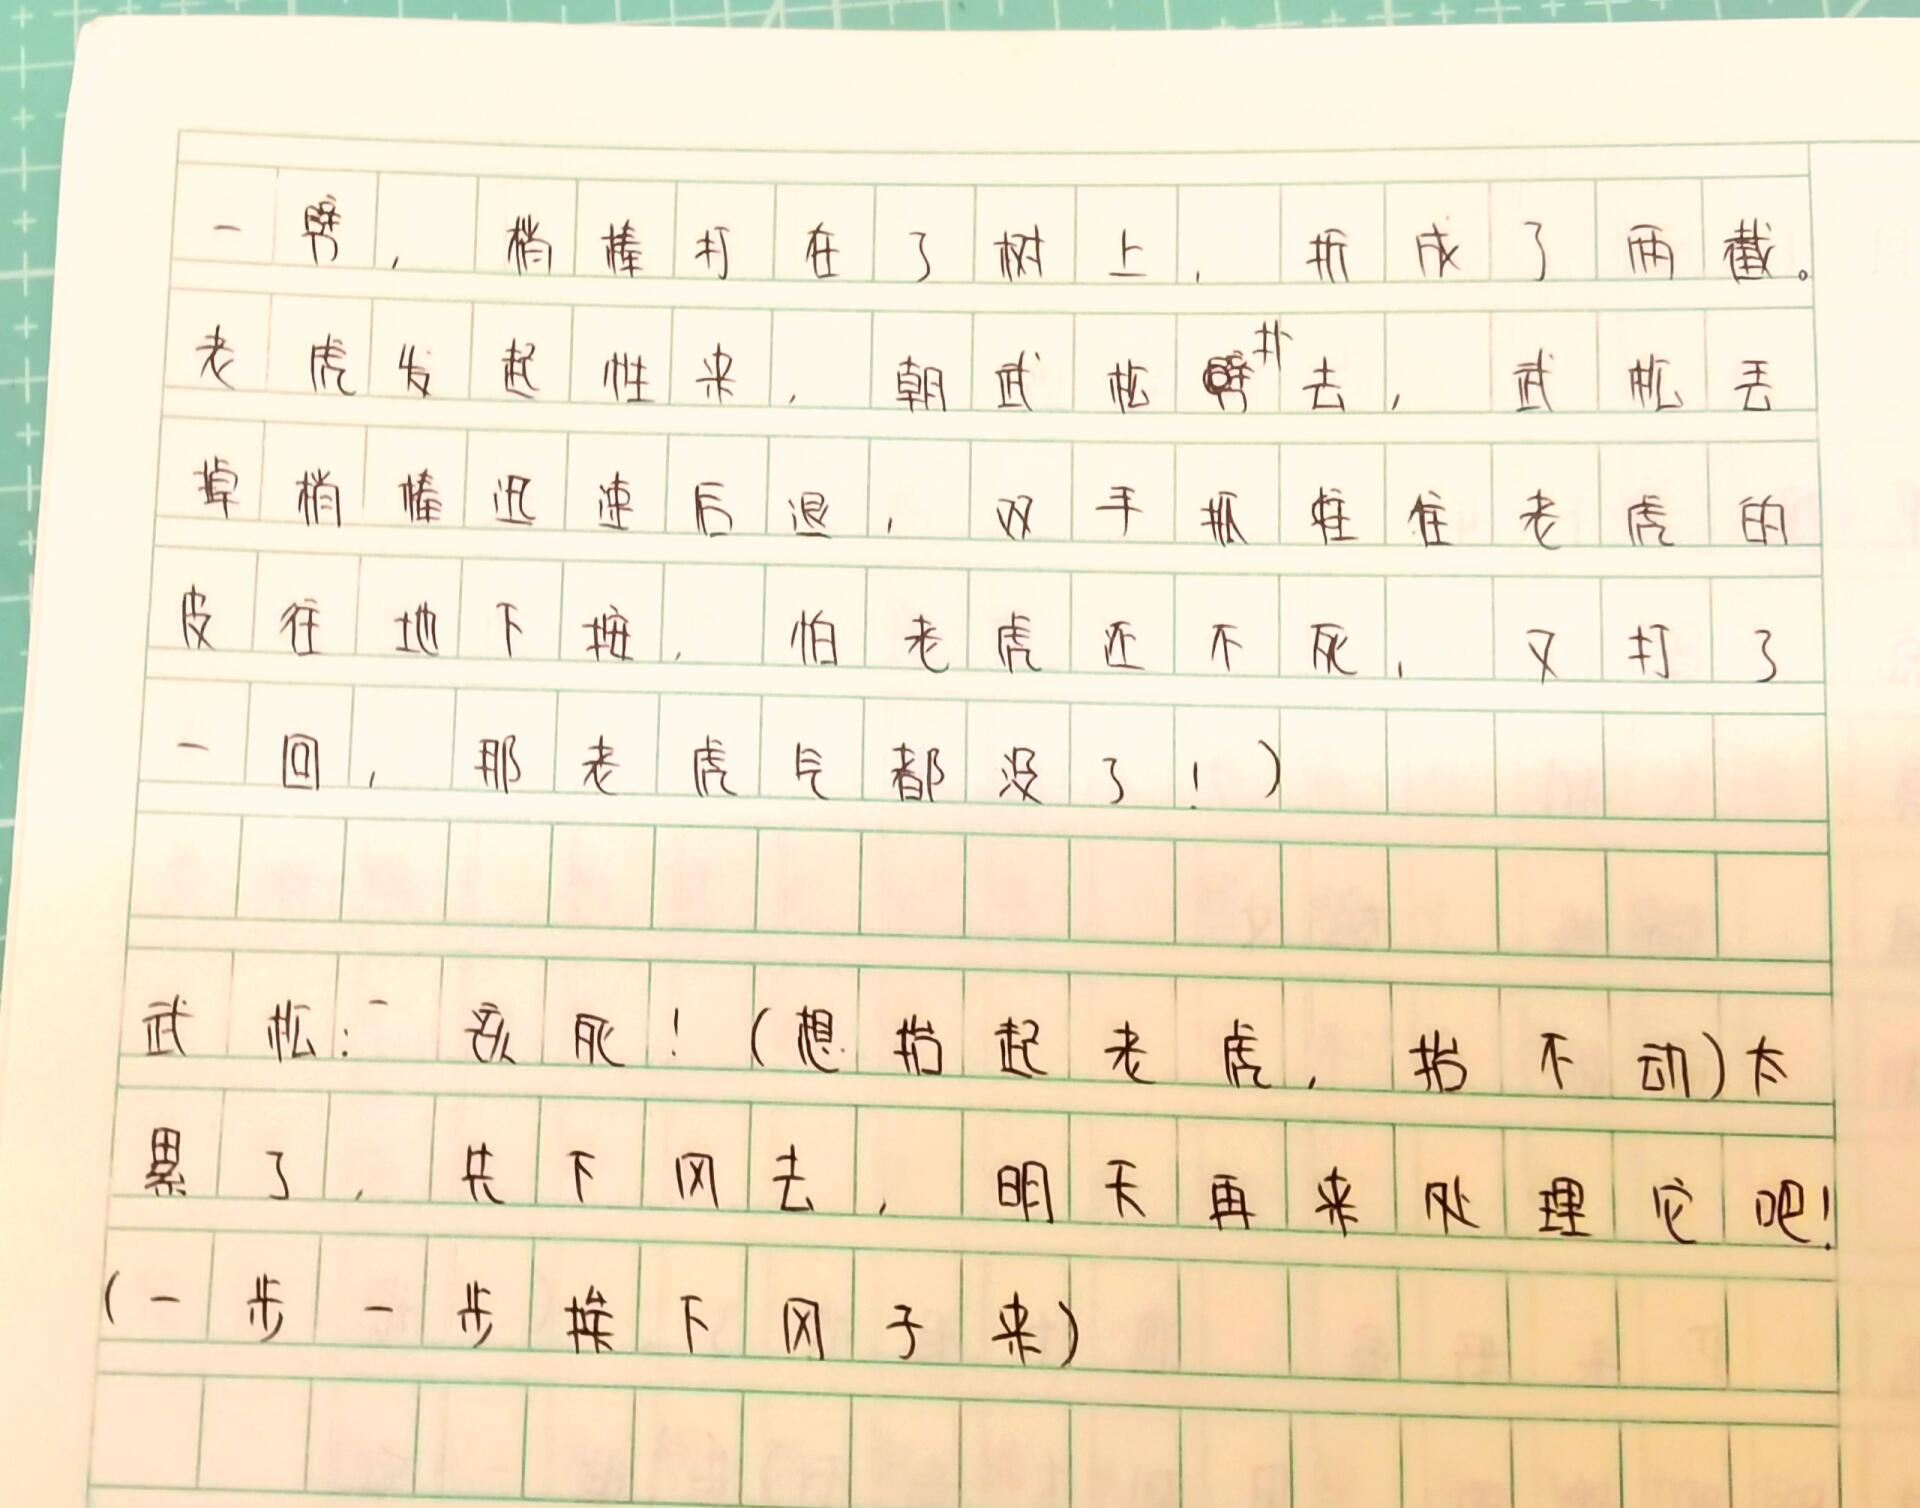 一劈，梢棒打在了树上，折成了两截。
老虎发起性来，朝武松扑去，武松丢
掉梢棒迅速后退，双手抓住老虎的
皮往地下按，怕老虎还不死，又打了
一回，那老虎气都没了！）
武松：该死！（想抬起老虎，抬不动）太
累了，先下冈去，明天再来处理它吧！
（一步一步挨下冈子来）